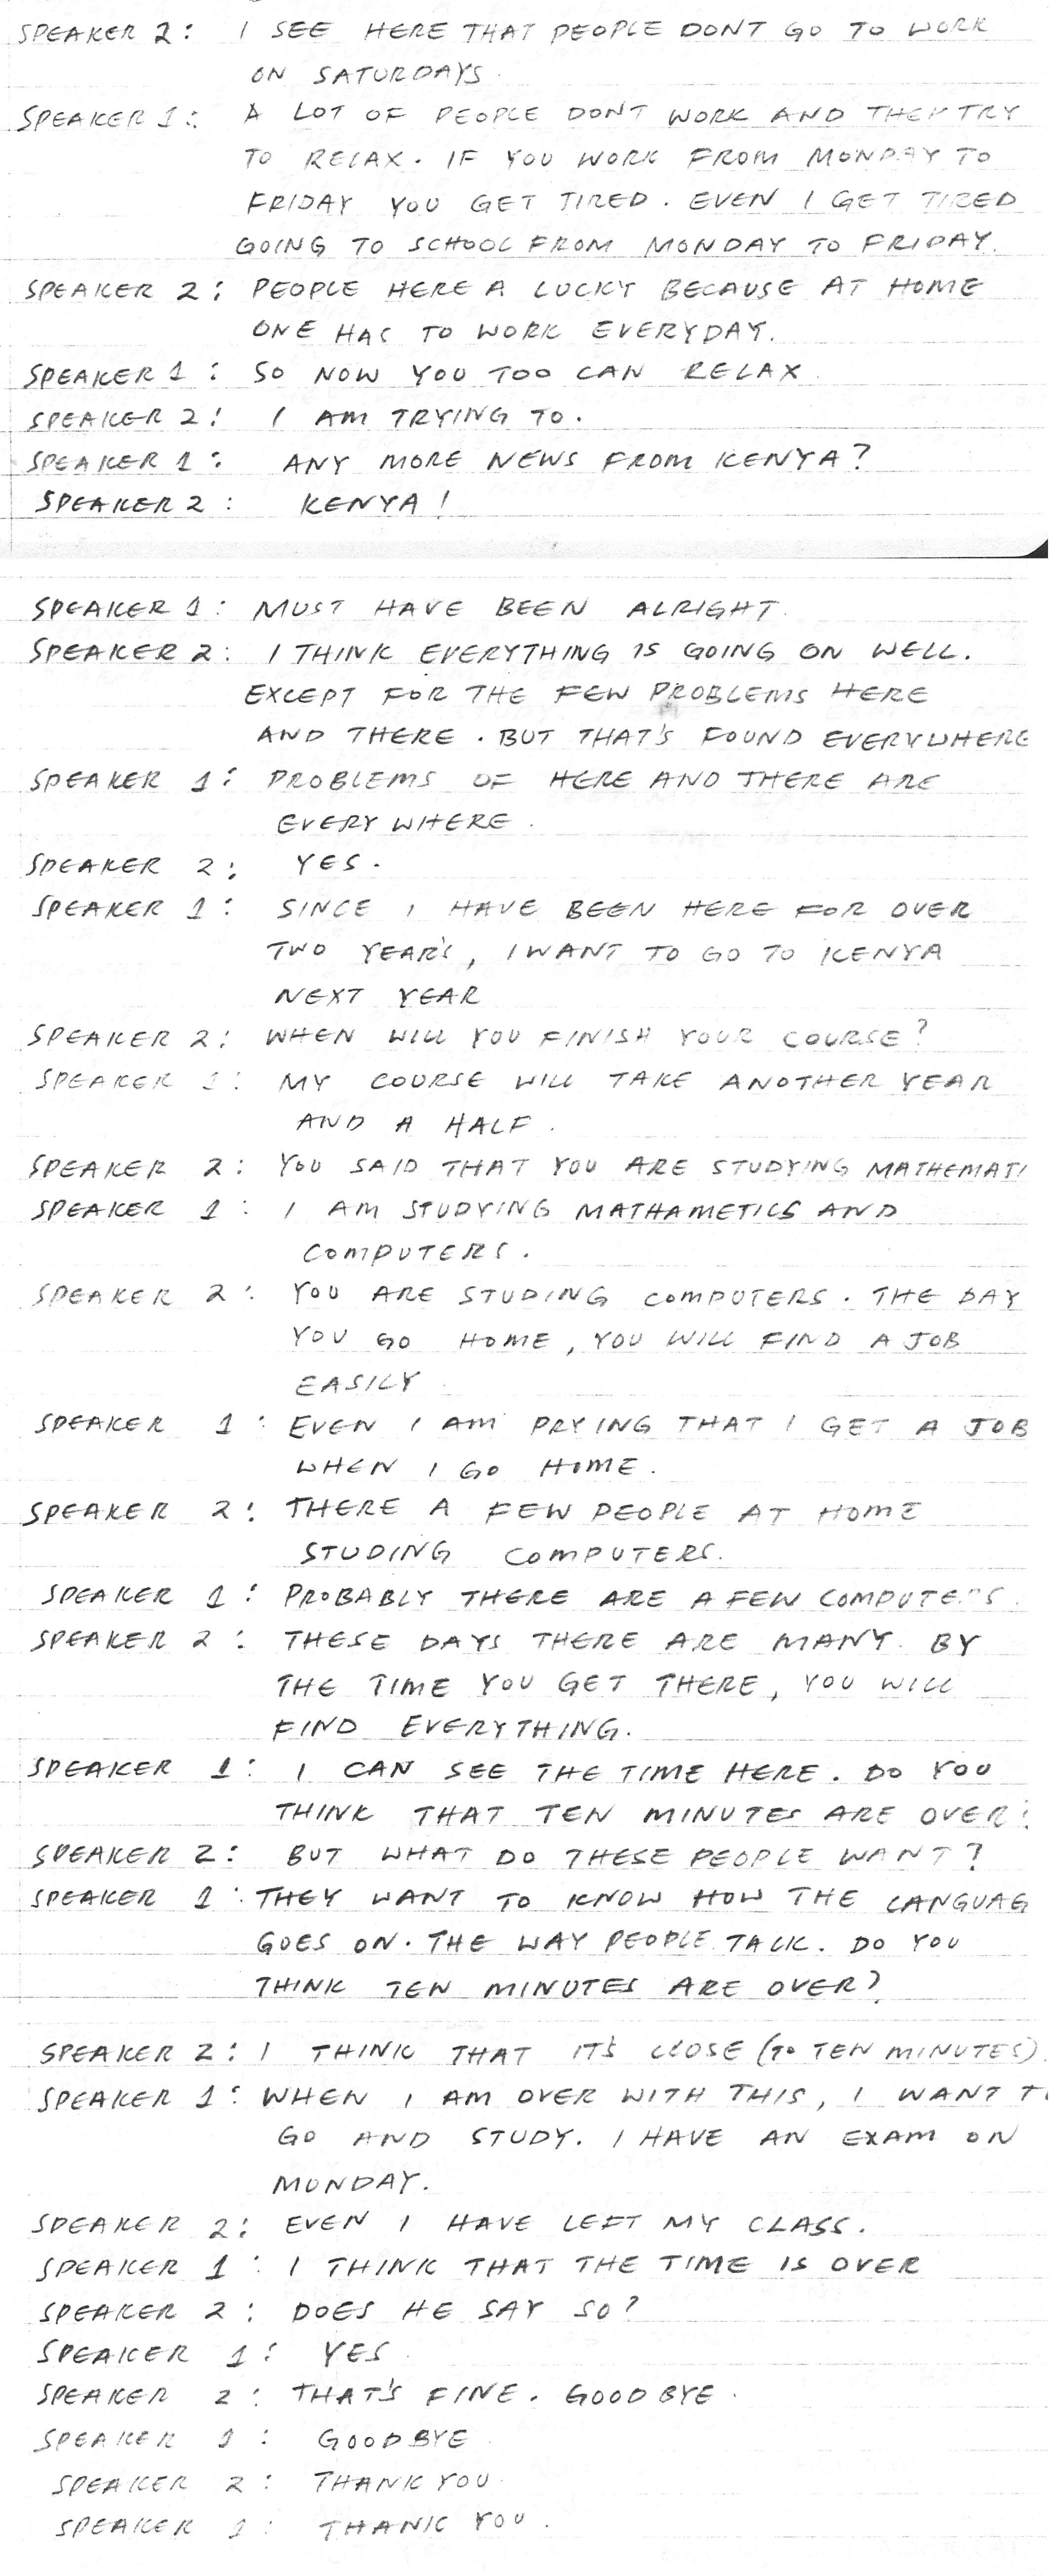 SPEAKER 2: I SEE HERE THAT PEOPLE DONT GO TO WORK
ON SATURDAYS.
SPEAKER 1: A LOT OF PEOPLE DONT WORK AND THEY TRY
TO RELAX. IF YOU WORK FROM MONDAY TO
FRIDAY YOU GET TIRED. EVEN I GET TIRED
GOING TO SCHOOL FROM MONDAY TO FRIDAY.
SPEAKER 2: PEOPLE HERE A LUCKY BECAUSE AT HOME
ONE HAS TO WORK EVERYDAY.
SPEAKER 1: SO NOW YOU TOO CAN RELAX.
SPEAKER 2: I AM TRYING TO.
SPEAKER 1: ANY MORE NEWS FROM KENYA?
SPEAKER 2: KENYA!
SPEAKER 1: MUST HAVE BEEN ALRIGHT.
SPEAKER 2: I THINK EVERYTHING IS GOING ON WELL.
EXCEPT FOR THE FEW PROBLEMS HERE
AND THERE. BUT THAT'S FOUND EVERYWHERE
SPEAKER 1: PROBLEMS OF HERE AND THERE ARE
EVERY WHERE.
SPEAKER 2: YES.
SPEAKER 1: SINCE I HAVE BEEN HERE FOR OVER
TWO YEAR'S, I WANT TO GO TO KENYA
NEXT YEAR
SPEAKER 2: WHEN WILL YOU FINISH YOUR COURSE?
SPEAKER 1: MY COURSE WILL TAKE ANOTHER YEAR
AND A HALF.
SPEAKER 2: YOU SAID THAT YOU ARE STUDYING MATHEMATI
SPEAKER 1: I AM STUDYING MATHAMETICS AND
COMPUTERS.
SPEAKER 2: YOU ARE STUDING COMPUTERS. THE DAY
YOU GO HOME, YOU WILL FIND A JOB
EASILY.
SPEAKER 1: EVEN I AM PRYING THAT I GET A JOB
WHEN I GO HOME.
SPEAKER 2: THERE A FEW PEOPLE AT HOME
STUDING COMPUTERS.
SPEAKER 1: PROBABLY THERE ARE A FEW COMPUTERS.
SPEAKER 2: THESE DAYS THERE ARE MANY. BY
THE TIME YOU GET THERE, YOU WILL
FIND EVERYTHING.
SPEAKER 1: I CAN SEE THE TIME HERE. DO YOU
THINK THAT TEN MINUTES ARE OVER?
SPEAKER 2: BUT WHAT DO THESE PEOPLE WANT?
SPEAKER 1: THEY WANT TO KNOW HOW THE LANGUAG
GOES ON. THE WAY PEOPLE TALK. DO YOU
THINK TEN MINUTES ARE OVER?
SPEAKER 2: I THINK THAT IT'S CLOSE (TO TEN MINUTES).
SPEAKER 1: WHEN I AM OVER WITH THIS, I WANT TO
GO AND STUDY. I HAVE AN EXAM ON
MONDAY.
SPEAKER 2: EVEN I HAVE LEFT MY CLASS.
SPEAKER 1: I THINK THAT THE TIME IS OVER
SPEAKER 2: DOES HE SAY SO?
SPEAKER 1: YES.
SPEAKER 2: THAT'S FINE. GOOD BYE.
SPEAKER 1: GOODBYE.
SPEAKER 2: THANK YOU.
SPEAKER 1: THANK YOU.